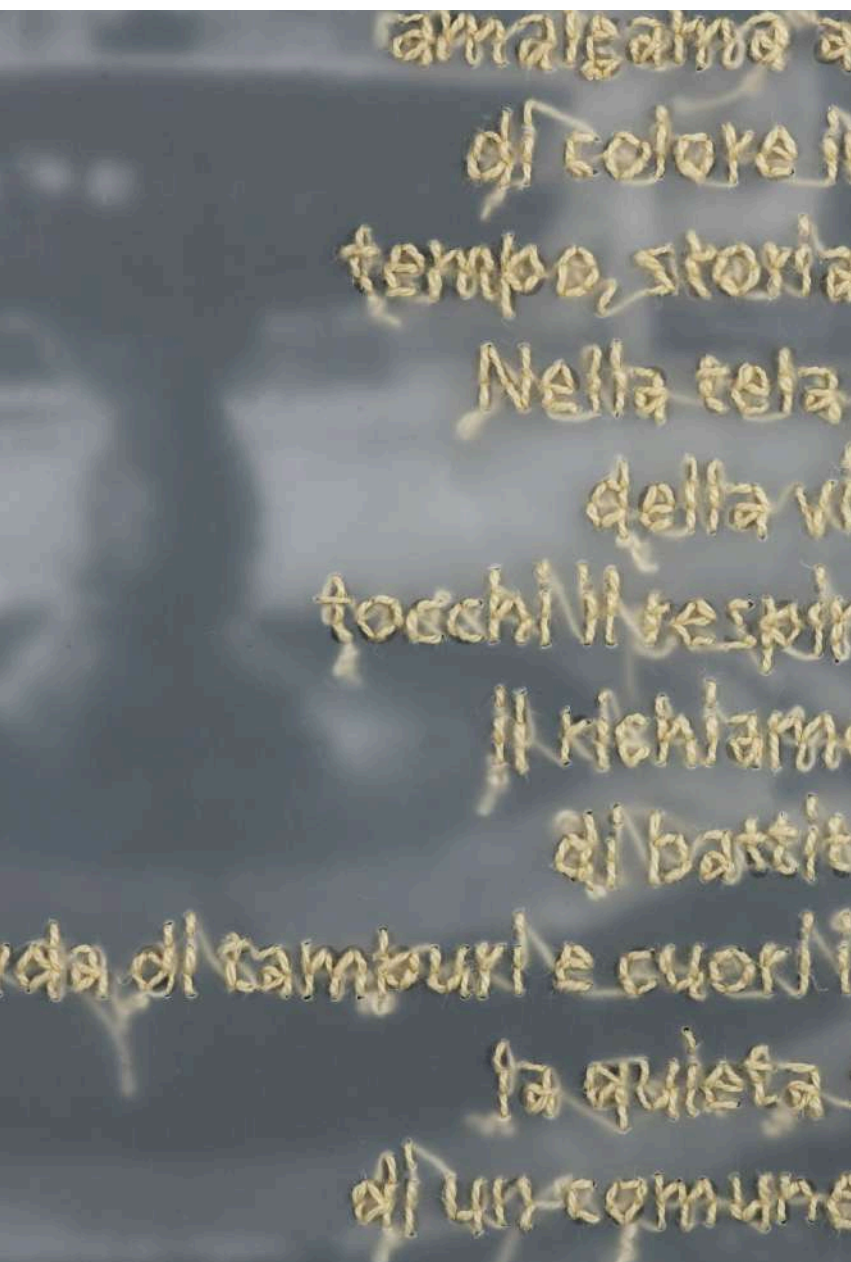 amalgama a
di colore i
tempo, storia
Nella tela
della vi
tocchi il respir
Il richiamo
di battit
da di tamburi e cuori i
la quieta
di un comune